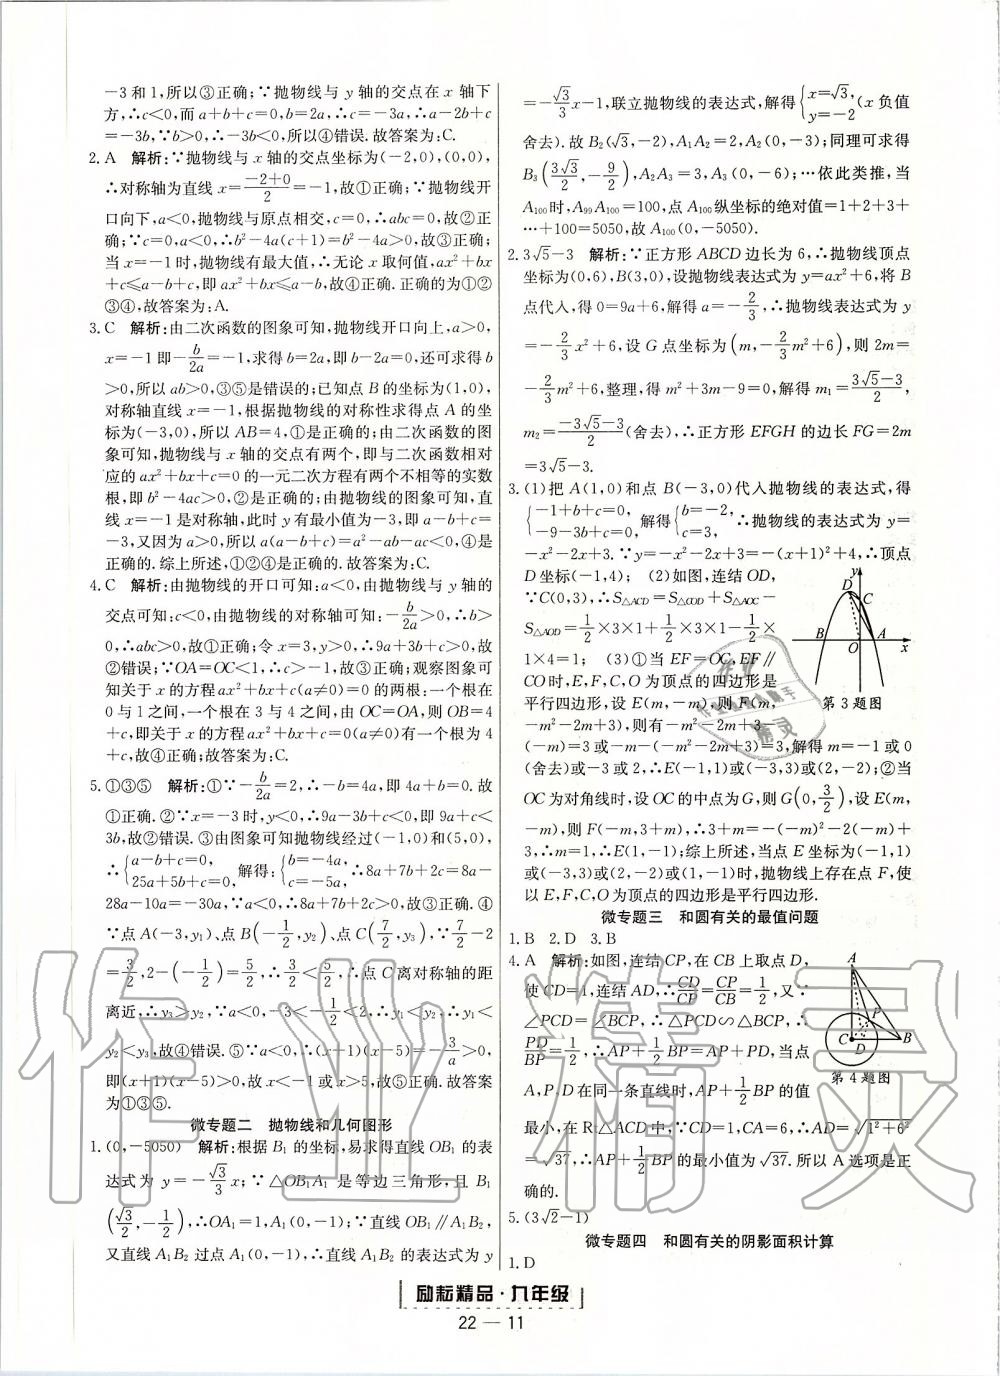 －3和1,所以③正确;∵抛物线与y轴的交点在x轴下
方,∴c<0,而a+b+c=0,b=2a,∴c=－3a,∴a－2b+c
=－3b,∵b>0,∴－3b<0,所以④错误.故答案为:C.
2. A　解析:∵抛物线与x轴的交点坐标为(－2,0),(0,0),
∴对称轴为直线x=\frac{－2+0}{2}=－1,故①正确;∵抛物线开
口向下,a<0,抛物线与原点相交,c=0,∴abc=0,故②正
确;∵c=0,a<0,∴b²－4a(c+1)=b²－4a>0,故③正确;
当x=－1时,抛物线有最大值,∴无论x取何值,ax²+bx
+c≤a－b+c,即ax²+bx≤a－b,故④正确.正确的为①②
③④,故答案为:A.
3. C　解析:由二次函数的图象可知,抛物线开口向上,a>0,
x=－1即－\frac{b}{2a}=－1,求得b=2a,即b－2a=0,还可求得b
>0,所以ab>0,③⑤是错误的;已知点B的坐标为(1,0),
对称轴直线x=－1,根据抛物线的对称性求得点A的坐
标为(－3,0),所以AB=4,①是正确的;由二次函数的图
象可知,抛物线与x轴的交点有两个,即与二次函数相对
应的ax²+bx+c=0的一元二次方程有两个不相等的实数
根,即b²－4ac>0,②是正确的;由抛物线的图象可知,直
线x=－1是对称轴,此时y有最小值为－3,即a－b+c=
－3,又因为a>0,所以a(a－b+c)=a²－ab－ac<0,④是
正确的.综上所述,①②④是正确的.故答案为:C.
4. C　解析:由抛物线的开口可知:a<0,由抛物线与y轴的
交点可知:c<0,由抛物线的对称轴可知:－\frac{b}{2a}>0,∴b>
0,∴abc>0,故①正确;令x=3,y>0,∴9a+3b+c>0,故
②错误;∵OA=OC<1,∴c>－1,故③正确;观察图象可
知关于x的方程ax²+bx+c(a≠0)=0的两根:一个根在
0与1之间,一个根在3与4之间,由OC=OA,则OB=4
+c,即关于x的方程ax²+bx+c=0(a≠0)有一个根为4
+c,故④正确;故答案为:C.
5. ①③⑤　解析:①∵－\frac{b}{2a}=2,∴－b=4a,即4a+b=0.故
①正确.②∵x=－3时,y<0,∴9a－3b+c<0,即9a+c<
3b,故②错误.③由图象可知抛物线经过(－1,0)和(5,0),
∴{a－b+c=0,25a+5b+c=0, 解得:{b=－4a,c=－5a, ∴8a+7b+2c=8a－
28a－10a=－30a,∵a<0,∴8a+7b+2c>0,故③正确.④
∵点A(－3,y₁)、点B(－\frac{1}{2},y₂)、点C(\frac{7}{2},y₃),∵\frac{7}{2}－2
=\frac{3}{2},2－(－\frac{1}{2})=\frac{5}{2},∴\frac{3}{2}<\frac{5}{2},∴点C离对称轴的距
离近,∴y₃>y₂,∵a<0,－3<－\frac{1}{2}<2,∴y₁<y₂,∴y₁<
y₂<y₃,故④错误.⑤∵a<0,∴(x+1)(x－5)=－\frac{3}{a}>0,
即(x+1)(x－5)>0,故x<－1或x>5,故⑤正确.故答案
为①③⑤.
微专题二　抛物线和几何图形
1. (0,－5050)　解析:根据B₁的坐标,易求得直线OB₁的表
达式为y=－\frac{√3}{3}x;∵△OB₁A₁是等边三角形,且B₁
(\frac{√3}{2},－\frac{1}{2}),∴OA₁=1,A₁(0,－1);∵直线OB₁∥A₁B₂,
又直线A₁B₂过点A₁(0,－1),∴直线A₁B₂的表达式为y
=－\frac{√3}{3}x－1,联立抛物线的表达式,解得{x=√3,y=－2 (x负值
舍去).故B₂(√3,－2),A₁A₂=2,A₂(0,－3);同理可求得
B₃(\frac{3√3}{2},－\frac{9}{2}),A₂A₃=3,A₃(0,－6);…依此类推,当
A₁₀₀时,A₉₉A₁₀₀=100,点A₁₀₀纵坐标的绝对值=1+2+3+
…+100=5050,故A₁₀₀(0,－5050).
2. 3√5－3　解析:∵正方形ABCD边长为6,∴抛物线顶点
坐标为(0,6),B(3,0),设抛物线表达式为y=ax²+6,将B
点代入,得0=9a+6,解得a=－\frac{2}{3},∴抛物线表达式为y
=－\frac{2}{3}x²+6,设G点坐标为(m,－\frac{2}{3}m²+6),则2m=
－\frac{2}{3}m²+6,整理,得m²+3m－9=0,解得m₁=\frac{3√5－3}{2},
m₂=\frac{－3√5－3}{2}(舍去),∴正方形EFGH的边长FG=2m
=3√5－3.
3. (1)把A(1,0)和点B(－3,0)代入抛物线的表达式,得
{－1+b+c=0,－9－3b+c=0, 解得{b=－2,c=3, ∴抛物线的表达式为y=
－x²－2x+3.∵y=－x²－2x+3=－(x+1)²+4,∴顶点
D坐标(－1,4);　(2)如图,连结OD,
∵C(0,3),∴S△ACD=S△COD+S△AOC－
S△AOD=\frac{1}{2}×3×1+\frac{1}{2}×3×1－\frac{1}{2}×
1×4=1;　(3)①当EF=OC,EF∥
CO时,E,F,C,O为顶点的四边形是
平行四边形,设E(m,－m),则F(m,
－m²－2m+3),则有－m²－2m+3－
(－m)=3或－m－(－m²－2m+3)=3,解得m=－1或0
(舍去)或－3或2,∴E(－1,1)或(－3,3)或(2,－2);②当
OC为对角线时,设OC的中点为G,则G(0,\frac{3}{2}),设E(m,
－m),则F(－m,3+m),∴3+m=－(－m)²－2(－m)+
3,∴m=1,∴E(1,－1);综上所述,当点E坐标为(－1,1)
或(－3,3)或(2,－2)或(1,－1)时,抛物线上存在点F,使
以E,F,C,O为顶点的四边形是平行四边形.
D
y
C
B
O
A
x
第3题图
微专题三　和圆有关的最值问题
1. B　2. D　3. B
4. A　解析:如图,连结CP,在CB上取点D,
使CD=1,连结AD,∴\frac{CD}{CP}=\frac{CP}{CB}=\frac{1}{2},又∵
∠PCD=∠BCP,∴△PCD∽△BCP,∴
\frac{PD}{BP}=\frac{1}{2},∴AP+\frac{1}{2}BP=AP+PD,当点
A,P,D在同一条直线时,AP+\frac{1}{2}BP的值
最小,在Rt△ACD中,∵CD=1,CA=6,∴AD=√(1²+6²)
=√37,∴AP+\frac{1}{2}BP的最小值为√37.所以A选项是正
确的.
A
P
C
D
B
第4题图
5. (3√2－1)
微专题四　和圆有关的阴影面积计算
1. D
励耘精品·九年级
22 — 11
作业精灵